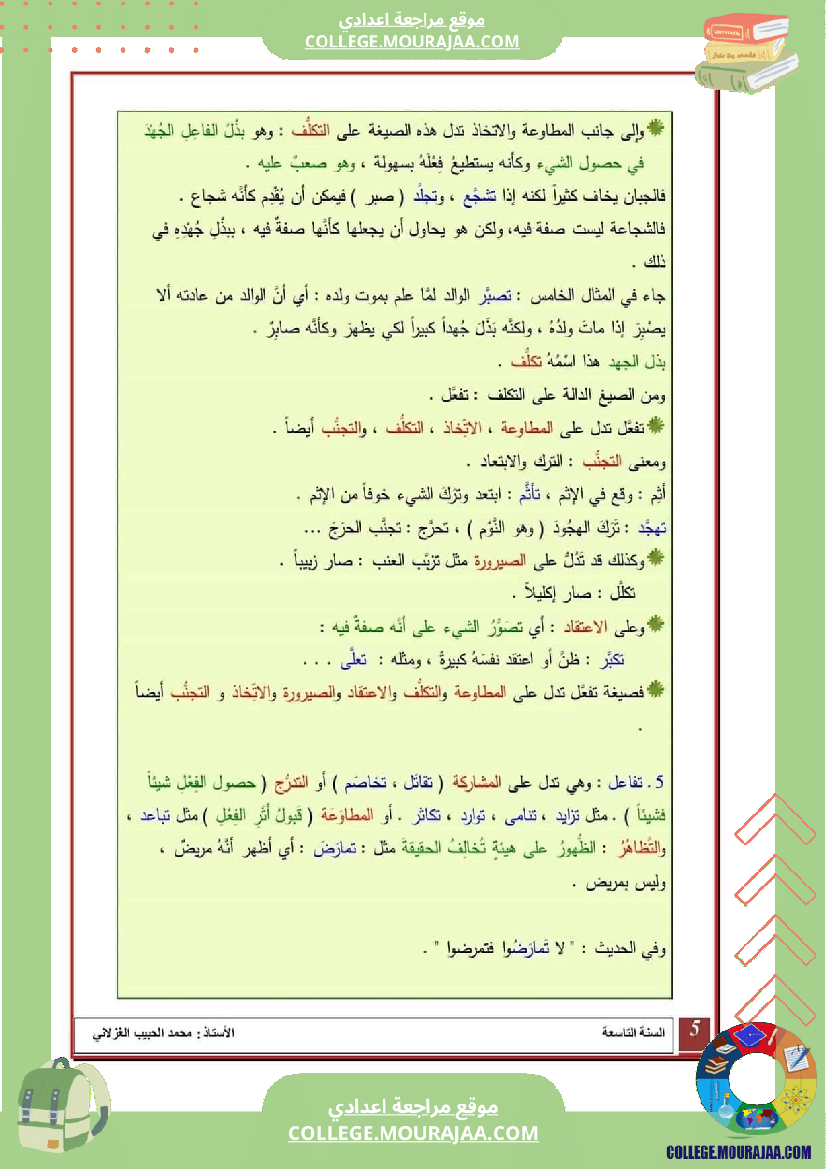 موقع مراجعة اعدادي
COLLEGE.MOURAJAA.COM
وإلى جانب المطاوعة والاتخاذ تدل هذه الصيغة على التكلُّف : وهو بذْلُ الفاعِلِ الجُهْدَ
في حصول الشيء وكأنه يستطيعُ فِعْلَهُ بسهولة ، وهو صعبٌ عليه .
فالجبان يخاف كثيراً لكنه إذا تشجَّع ، وتجلَّد ( صبر ) فيمكن أن يُقْدِم كأنَّه شجاع .
فالشجاعة ليست صفة فيه، ولكن هو يحاول أن يجعلها كأنَّها صفةٌ فيه ، ببذْلِ جُهْدِهِ في
ذلك .
جاء في المثال الخامس : تصبَّر الوالد لمَّا علم بموت ولده : أي أنَّ الوالد من عادته ألا
يصْبِرَ إذا ماتَ ولدُهُ ، ولكنَّه بَذَلَ جُهداً كبيراً لكي يظهرَ وكأنَّه صابِرٌ .
بذل الجهد هذا اسْمُهُ تكلُّف .
ومن الصيغ الدالة على التكلف : تفعَّل .
تفعَّل تدل على المطاوعة ، الاتِّخاذ ، التكلُّف ، والتجنُّب أيضاً .
ومعنى التجنُّب : الترك والابتعاد .
أثِم : وقع في الإثم ، تأثَّم : ابتعد وترَكَ الشيء خوفاً من الإثم .
تهجَّد : تَرَكَ الهجُودَ ( وهو النَّوْم ) ، تحرَّج : تجنَّب الحرَجَ ...
وكذلك قد تَدُلُّ على الصيرورة مثل تزبَّب العنب : صار زبيباً .
تكلَّل : صار إكليلاً .
وعلى الاعتقاد : أي تصَوُّرُ الشيء على أنَّه صفةٌ فيه :
تكبَّر : ظنَّ أو اعتقد نفسَهُ كبيرةً ، ومثله : تعلَّى . . .
فصيغة تفعَّل تدل على المطاوعة والتكلُّف والاعتقاد والصيرورة والاتِّخاذ و التجنُّب أيضاً
.
5. تفاعل : وهي تدل على المشاركة ( تقاتَل ، تخاصَم ) أو التدرُّج ( حصول الفِعْلِ شيئاً
فشيئاً ) . مثل تزايد ، تنامى ، توارد ، تكاثر . أو المطاوَعَة ( قَبولُ أثَرِ الفِعْلِ ) مثل تباعد ،
والتَّظاهُرُ : الظُّهورُ على هيئةٍ تُخالِفُ الحقيقةَ مثل : تمارَضَ : أي أظهر أنَّهُ مريضٌ ،
وليس بمريض .
وفي الحديث : " لا تَمارَضُوا فتمرضوا " .
5
السنة التاسعة
الأستاذ : محمد الحبيب الغزلاني
موقع مراجعة اعدادي
COLLEGE.MOURAJAA.COM
COLLEGE.MOURAJAA.COM